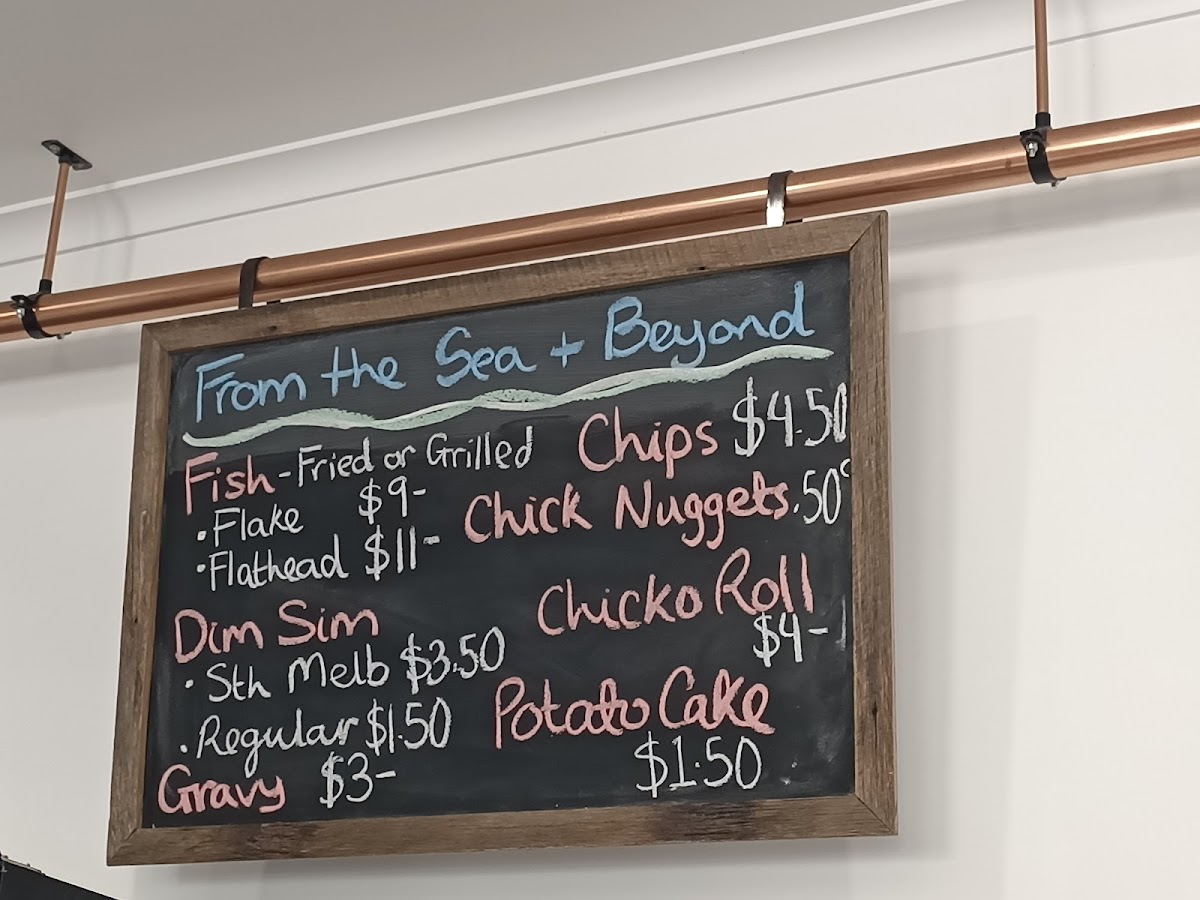 From the Sea + Beyond
Fish - Fried or Grilled
• Flake $9-
• Flathead $11-
Dim Sim
• Sth Melb $3.50
• Regular $1.50
Gravy $3-
Chips $4.50
Chick Nuggets .50c
Chicko Roll
$4-
Potato Cake
$1.50